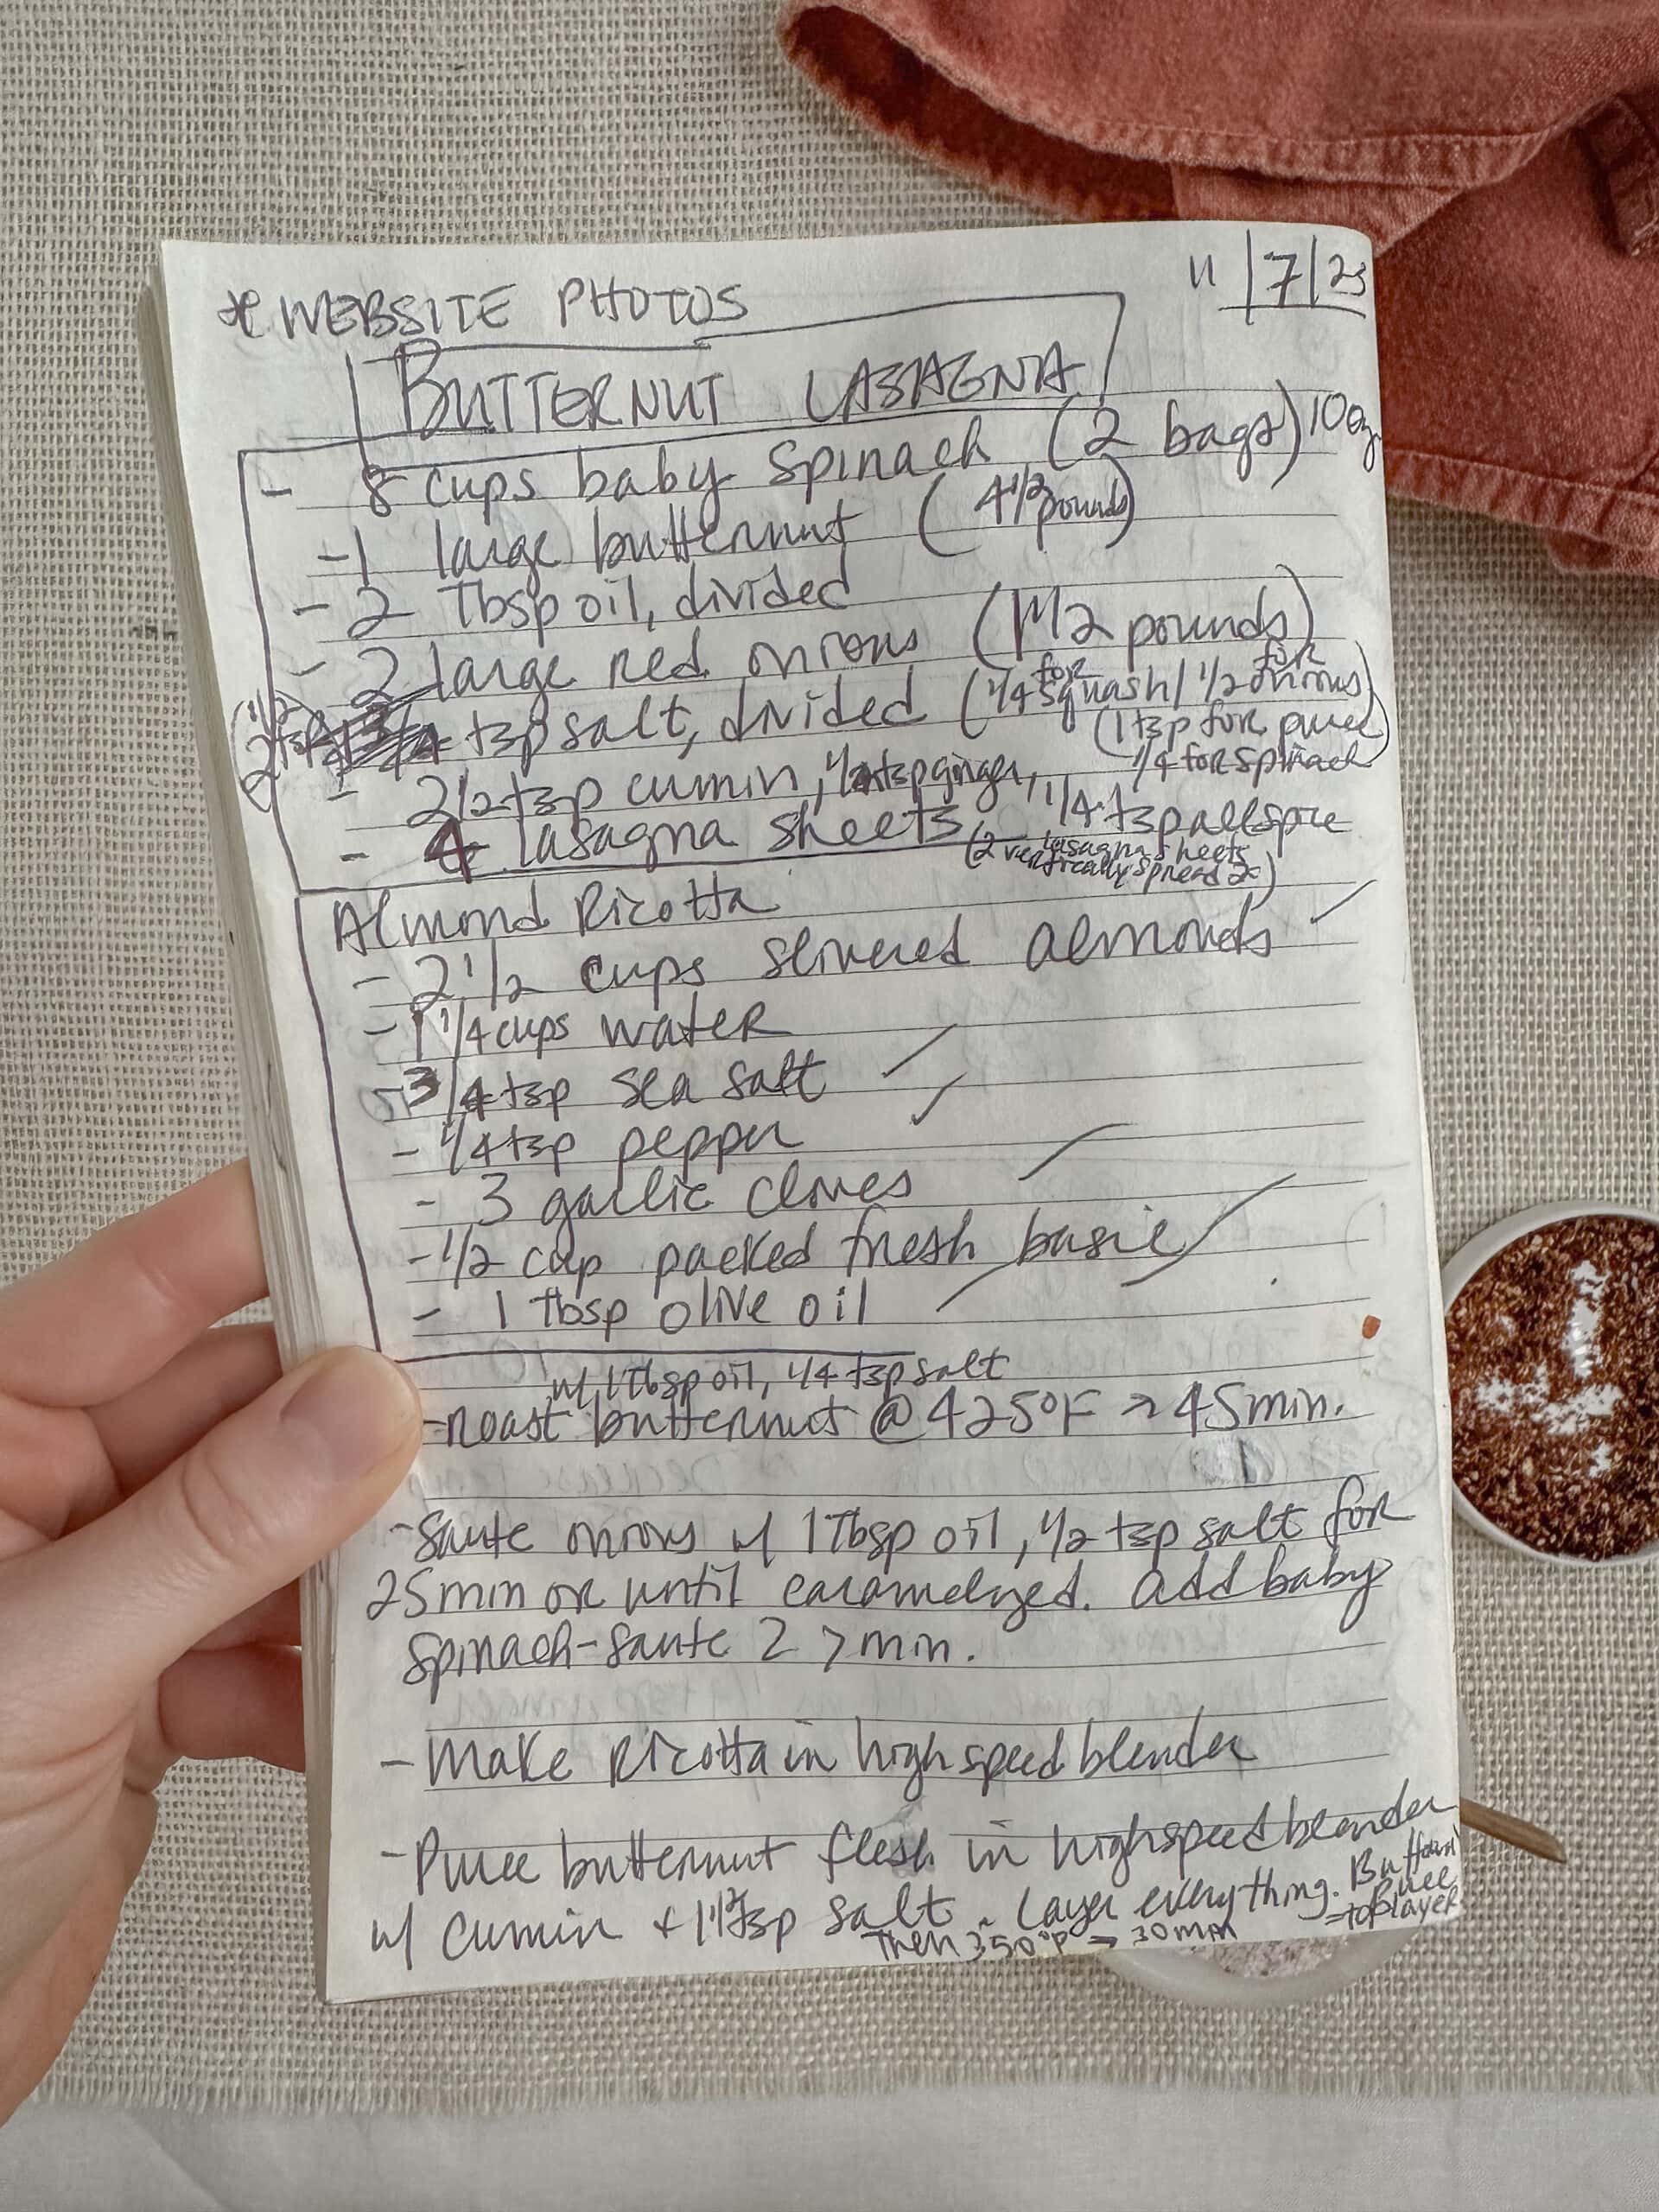 * WEBSITE PHOTOS
11/7/23
BUTTERNUT LASAGNA
- 8 cups baby spinach (2 bags) 10oz
- 1 large butternut (4 1/2 pounds)
- 2 Tbsp oil, divided
- 2 large red onions (1 1/2 pounds)
(2 1/2 tsp salt, divided (1/4 for squash / 1/2 for onions)
(1 tsp for puree)
1/4 for spinach
- 2 1/2 tsp cumin, 1/2 tsp ginger, 1/4 tsp allspice
- 4 lasagna sheets (2 lasagna sheets
vertically spread 2x)
Almond Ricotta
- 2 1/2 cups slivered almonds
- 1 1/4 cups water
- 3/4 tsp sea salt
- 1/4 tsp pepper
- 3 garlic cloves
- 1/2 cup packed fresh basil
- 1 Tbsp olive oil
w/ 1 Tbsp oil, 1/4 tsp salt
- roast butternut @ 425°F → 45 min.
- Saute onions w/ 1 Tbsp oil, 1/2 tsp salt for
25 min or until caramelized. Add baby
spinach - saute 2 > min.
- Make Ricotta in high speed blender
- Puree butternut flesh in high speed blender
w/ cumin + tsp salt. Layer everything. Butternut
Puree
= top layer
Then 350°F → 30 min